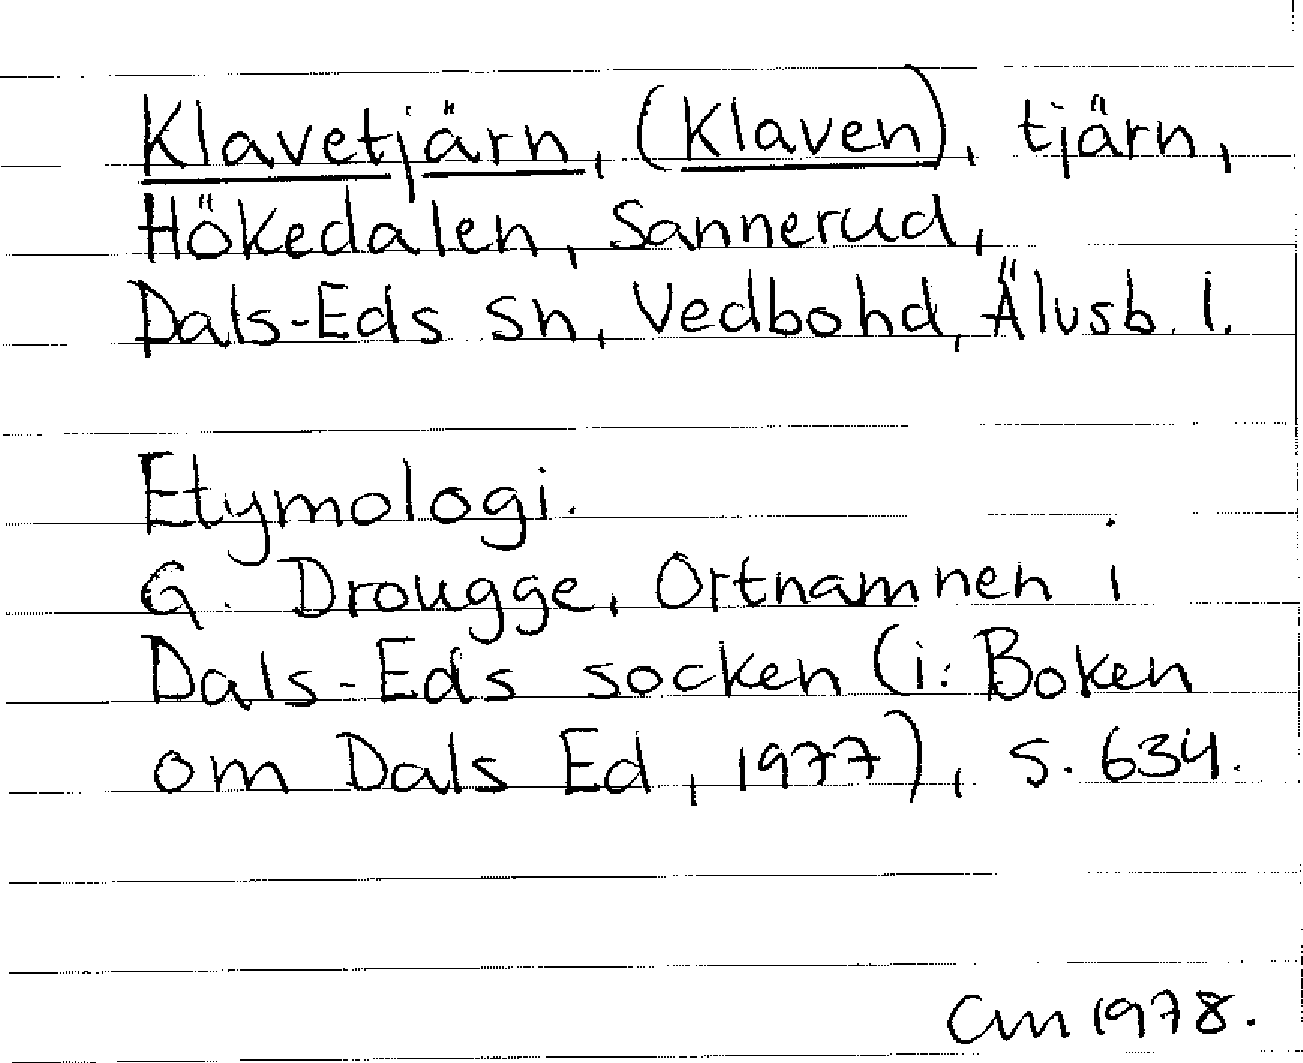 Klavetjärn, (Klaven), tjärn,
Hökedalen, Sannerud,
Dals-Eds sn, Vedbohd, Älvsb. l.
Etymologi.
G. Drougge, Ortnamnen i
Dals-Eds socken (i: Boken
om Dals Ed, 1977), s. 634.
Cm 1978.